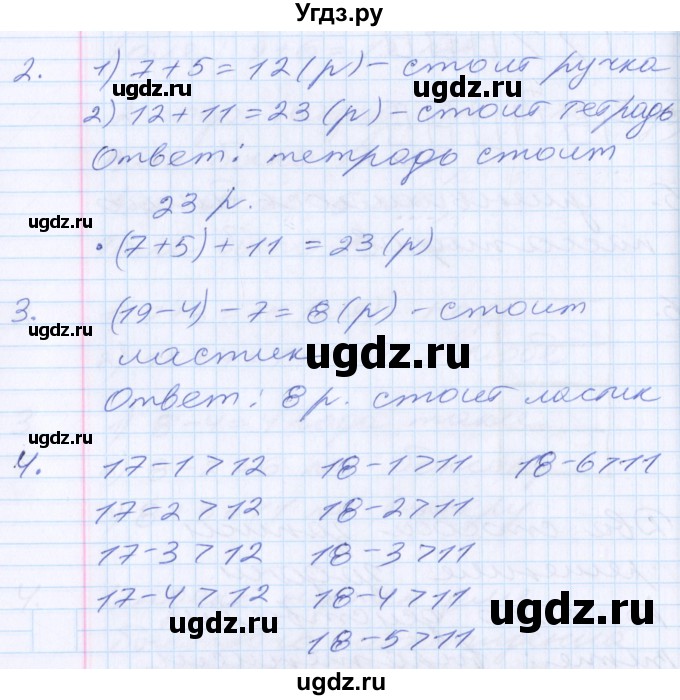 Угдз.ру
2. 1) 7+5=12(р) – стоит ручка
ugdz.ru
2) 12+11=23(р) – стоит тетрадь
Ответ: тетрадь стоит
23 р.
ugdz.ru
ugdz.ru
• (7+5)+11 =23(р)
3. (19-4)-7=8(р) – стоит
ugdz.ru
ластик.
ugdz.ru
Ответ: 8р. стоит ластик
ugdz.ru
4. 17-1>12 18-1>11 18-6>11
17-2>12 18-2>11
17-3>12 18-3>11
17-4>12 18-4>11
ugdz.ru
ugdz.ru
18-5>11
ugdz.ru
ugdz.ru